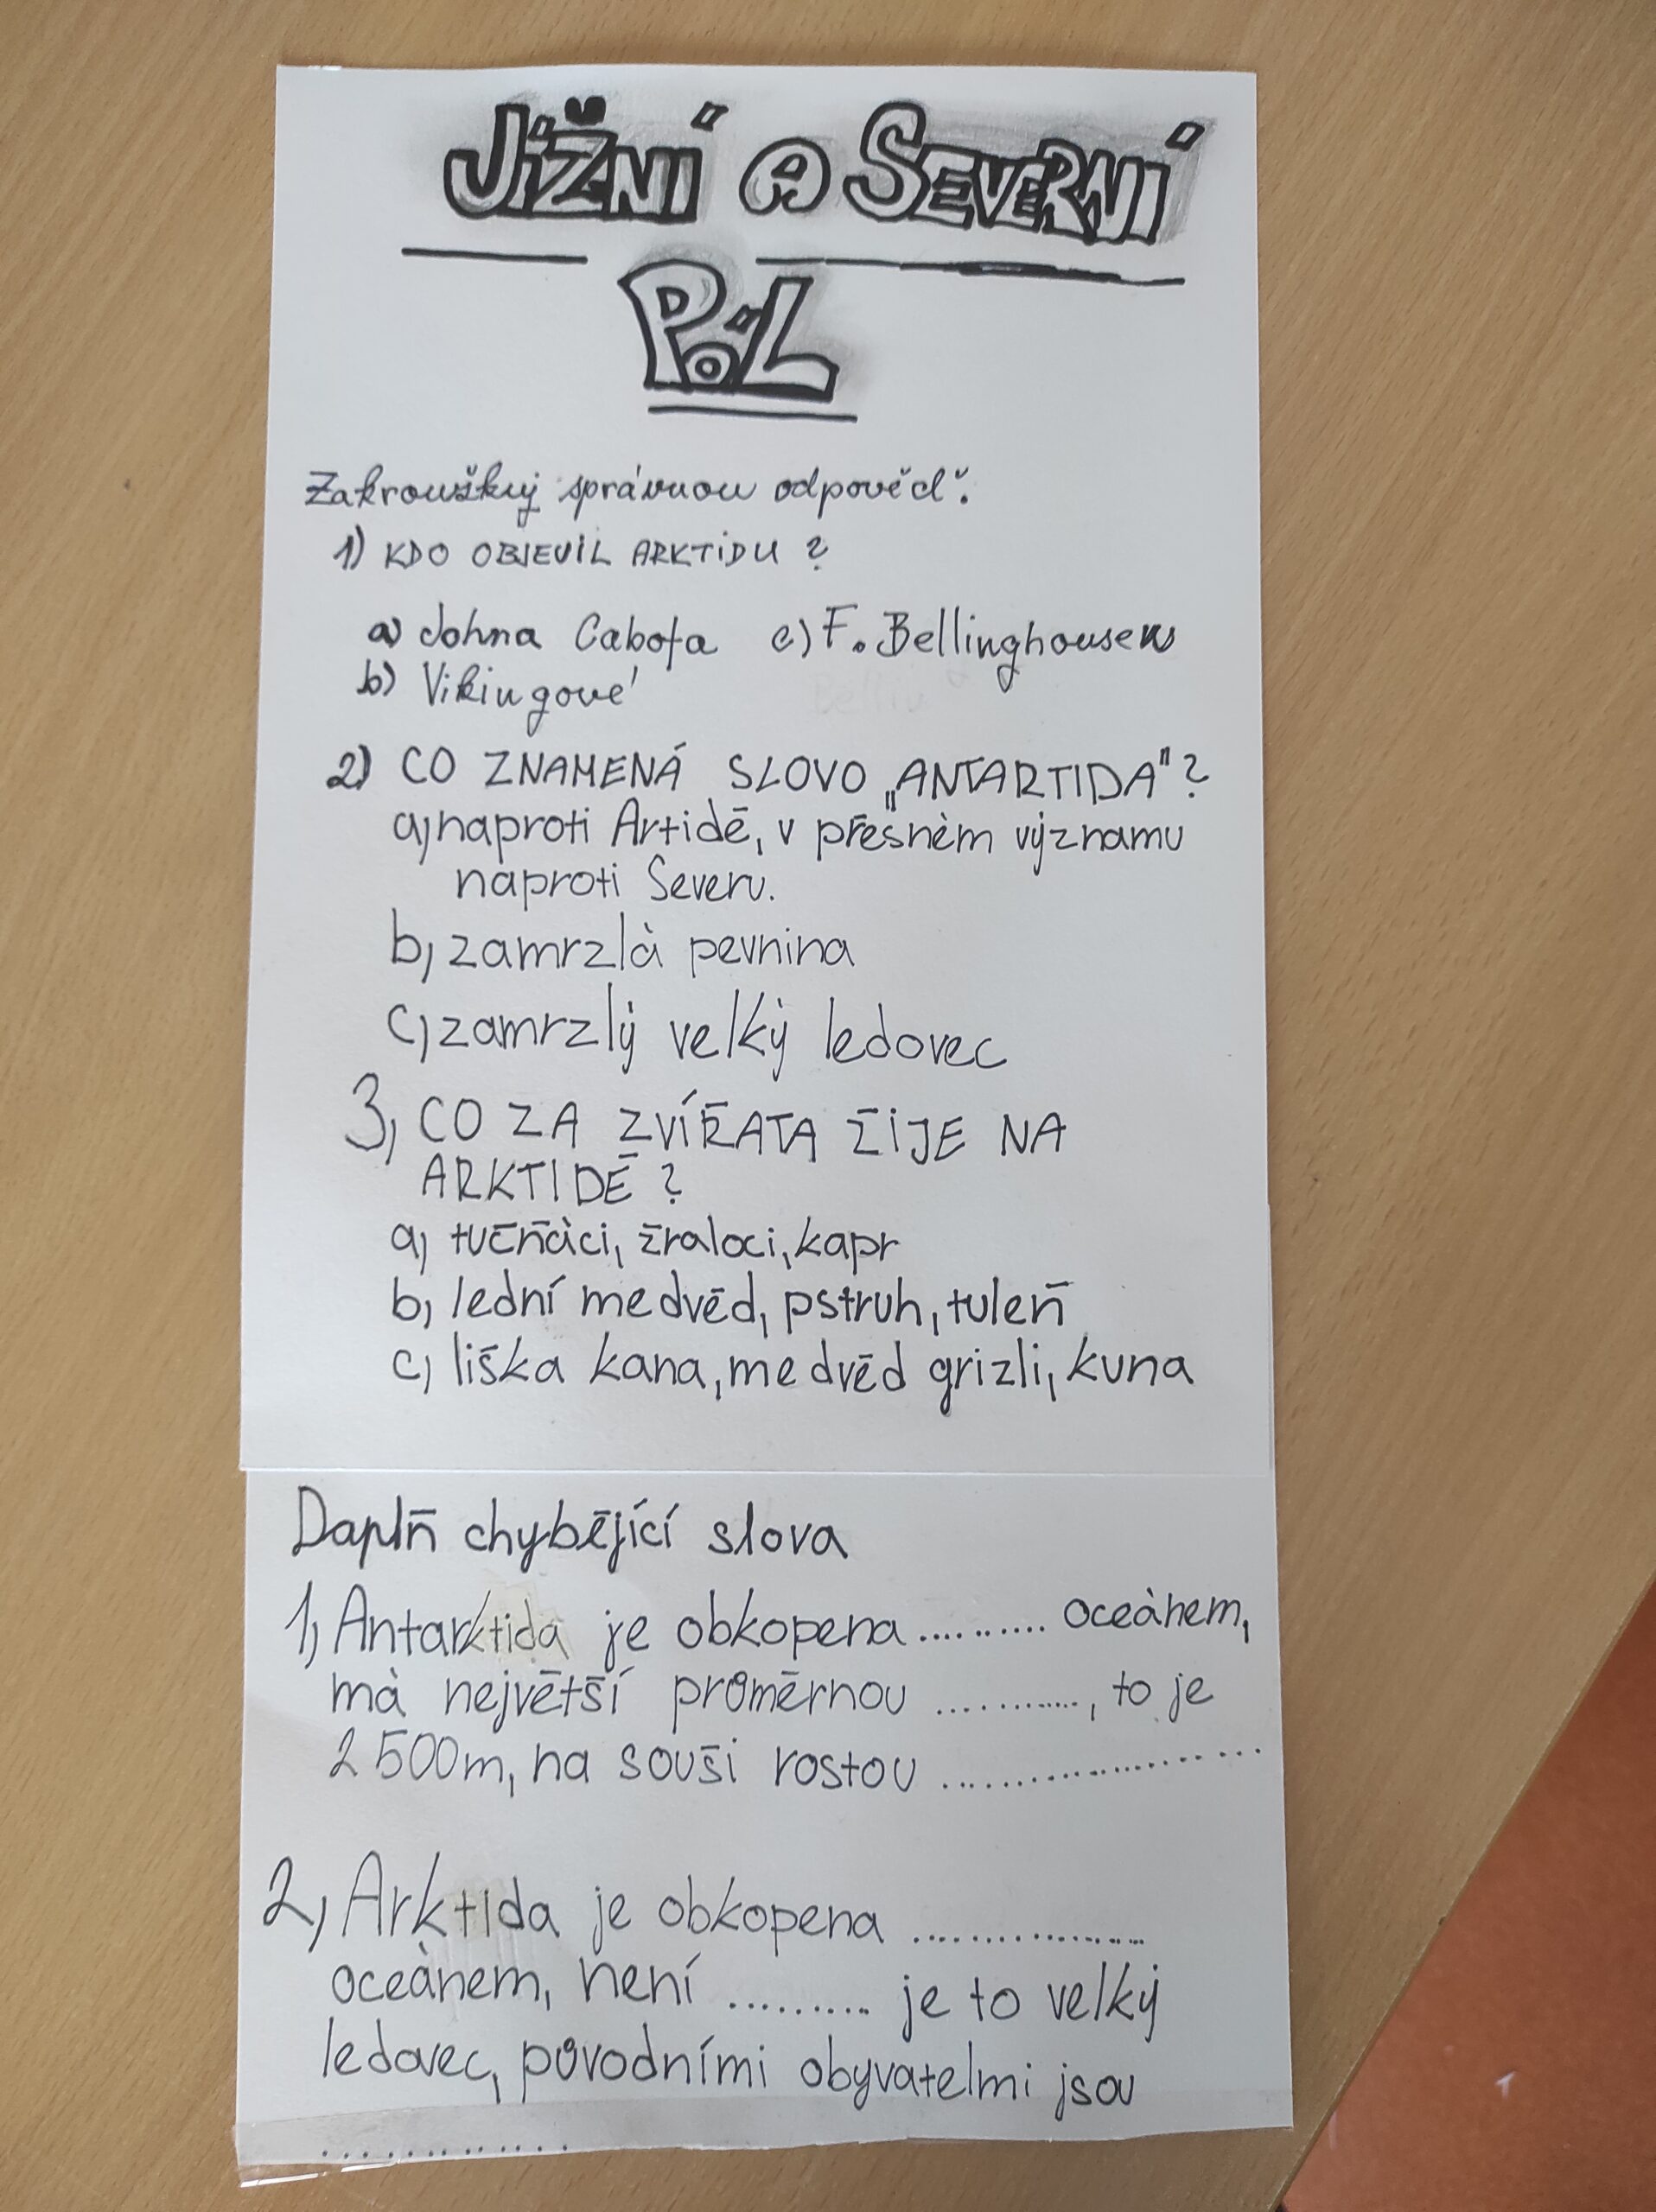 JižNí A SEVERNí
PóL
Zakrouškuj správnou odpověď:
1) KDO OBJEVIL ARKTiDU ?
a) Johna Cabota c) F. Bellinghousen
b) Vikingové
2) CO ZNAMENÁ SLOVO „ANTARTIDA"?
a, naproti Artidě, v přesném významu
naproti Severu.
b, zamrzlá pevnina
c, zamrzlý velký ledovec
3, CO ZA ZVÍŘATA ŽIJE NA
ARKTIDĚ ?
a, tučňáci, žraloci, kapr
b, lední medvěd, pstruh, tuleň
c, liška kana, medvěd grizli, kuna
Daplň chybějící slova
1, Antarktida je obkopena .......... oceánem,
má největší průměrnou ..........., to je
2 500m, na souši rostou ......................
2, Arktida je obkopena .................
oceánem, není .......... je to velký
ledovec, původními obyvatelmi jsou
.............